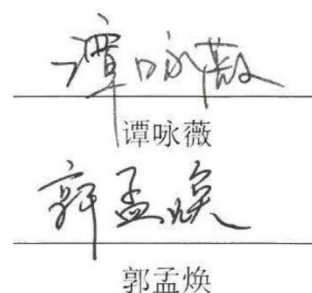 谭咏薇
谭咏薇
郭孟焕
郭孟焕